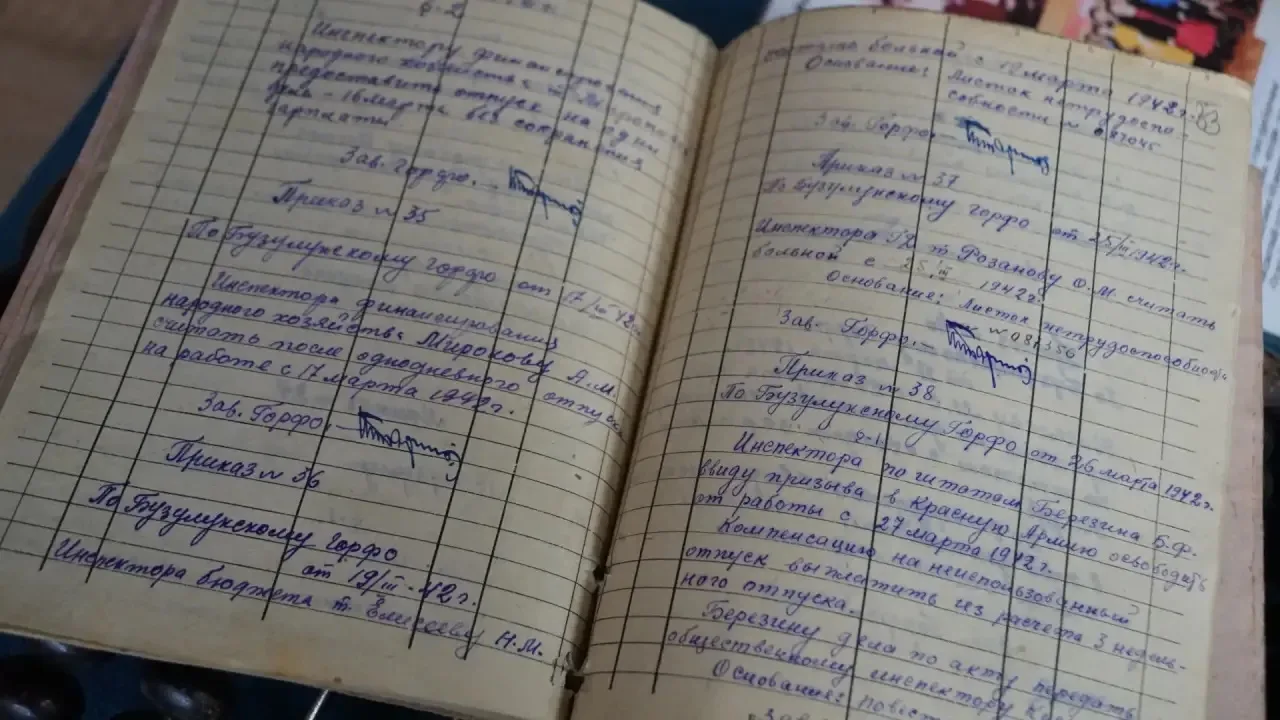 §-2
Инспектору финансирования
народного хозяйства т. Мироновой
предоставить отпуск на один
день - 16 марта без сохранения
зарплаты
Зав. Горфо. -
Приказ № 35
По Бузулукскому горфо от 17/III 42г.
Инспектора финансирования
народного хозяйства Миронову А.М.
считать после однодневного отпуска
на работе с 17 марта 1942г.
Зав. Горфо, -
Приказ № 36
По Бузулукскому горфо
от 19/III - 42г.
Инспектора бюджета т. Елисееву Н.М.
больной с 19 марта 1942г.
Основание: Листок нетрудоспо-
собности №
Зав. Горфо -
Приказ № 37
По Бузулукскому горфо от 25/III 1942г.
Инспектора т. Розанову О.М. считать
больной с 25.III 1942г.
Основание: Листок нетрудоспособности
№ 081550
Зав. Горфо, -
Приказ № 38
По Бузулукскому Горфо от 26 марта 1942г.
§-1.
Инспектора по штатам Березина Б.Ф.
ввиду призыва в Красную Армию освободить
от работы с 27 марта 1942г.
Компенсацию на неиспользованный
отпуск выплатить из расчета 3 недель-
ного отпуска.
Березину дела по акту передать
общественному инспектору
Основание: повест